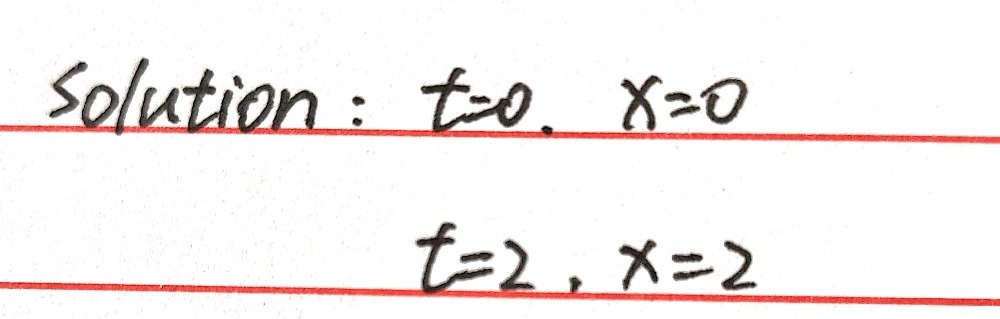 Solution: t=0. x=0
t=2, x=2